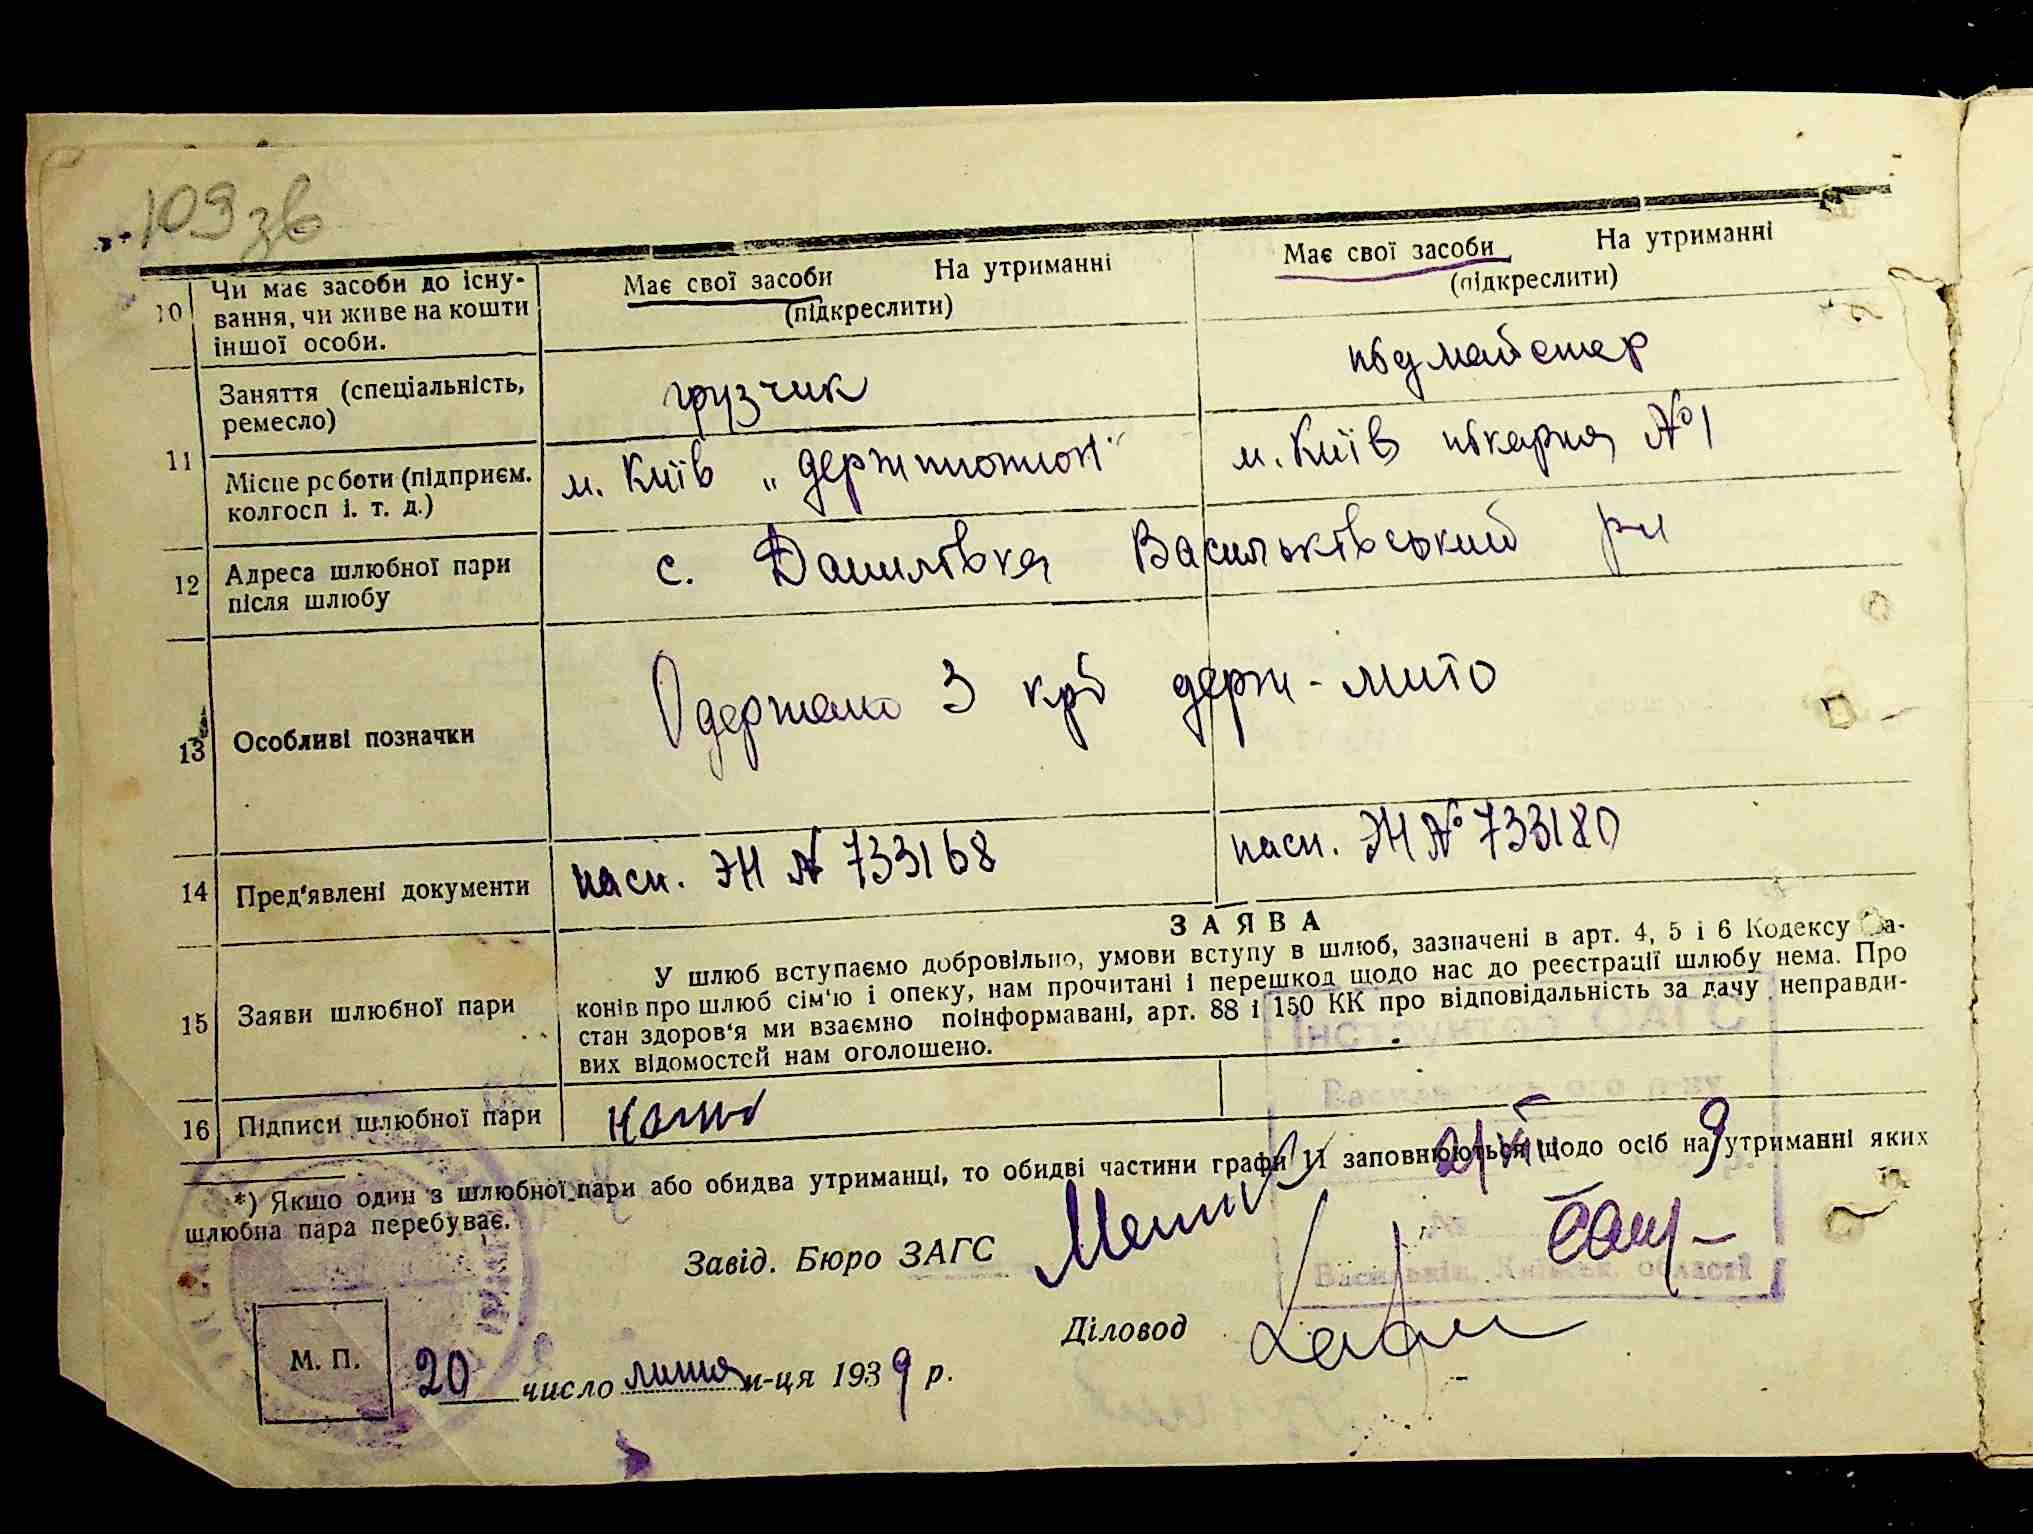 109 зв
10 Чи має засоби до існу-
вання, чи живе на кошти
іншої особи.
Має свої засоби На утриманні
(підкреслити)
Має свої засоби На утриманні
(підкреслити)
11 Заняття (спеціальність,
ремесло)
грузчик
підмайстер
Місце роботи (підприєм.
колгосп і. т. д.)
м. Київ
м. Київ пікарня № 1
12 Адреса шлюбної пари
після шлюбу
с. Данилівка Васильківський р-н
13 Особливі позначки
Одержано 3 крб держ-мито
14 Пред'явлені документи
пасп. ЭН № 733168
пасп. ЭН № 733180
15 Заяви шлюбної пари
ЗАЯВА
У шлюб вступаємо добровільно, умови вступу в шлюб, зазначені в арт. 4, 5 і 6 Кодексу за-
конів про шлюб сім'ю і опеку, нам прочитані і перешкод щодо нас до реєстрації шлюбу нема. Про
стан здоров'я ми взаємно поінформавані, арт. 88 і 150 КК про відповідальність за дачу неправди-
вих відомостей нам оголошено.
Інструктор ОАГС
16 Підписи шлюбної пари
*) Якщо один з шлюбної пари або обидва утриманці, то обидві частини графи 11 заповнюються щодо осіб на утриманні яких
шлюбна пара перебуває.
Завід. Бюро ЗАГС
Васильків, Київськ. області
Діловод
М. П.
20 число липня м-ця 1939 р.